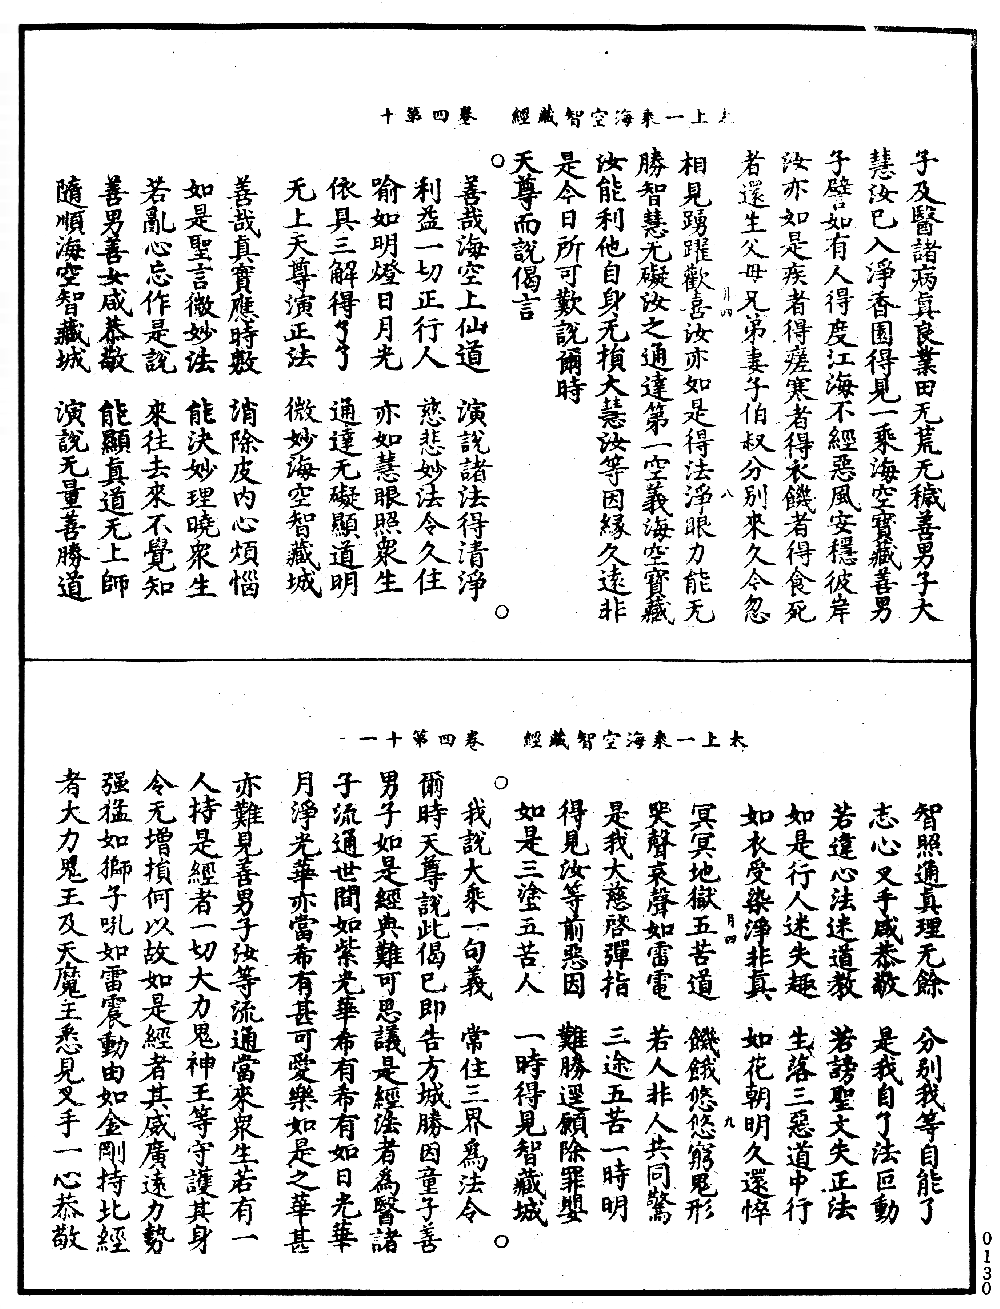 太上一乘海空智藏經　卷四第十
子及醫諸病真良業田无荒无穢善男子大
慧汝已入淨香園得見一乘海空寶藏善男
子譬如有人得度江海不經惡風安穩彼岸
汝亦如是疾者得瘥寒者得衣饑者得食死
者還生父母兄弟妻子伯叔分別來久令忽
月四　八
相見踴躍歡喜汝亦如是得法淨眼力能无
勝智慧无礙汝之通達第一空義海空寶藏
汝能利他自身无損大慧汝等因緣久遠非
是今日所可歎說爾時
天尊而說偈言
善哉海空上仙道　演說諸法得清淨
利益一切正行人　慈悲妙法令久住
喻如明燈日月光　亦如慧眼照衆生
依具三解得了了　通達无礙顯道明
无上天尊演正法　微妙海空智藏城
善哉真實應時敷　消除皮內心煩惱
如是聖言微妙法　能決妙理曉衆生
若亂心忘作是說　來往去來不覺知
善男善女咸恭敬　能顯真道无上師
隨順海空智藏城　演說无量善勝道
太上一乘海空智藏經　卷四第十一
智照通真理无餘　分別我等自能了
志心叉手咸恭敬　是我自了法叵動
若違心法迷道教　若謗聖文失正法
如是行人迷失趣　生落三惡道中行
如衣受染淨非真　如花朝明久還悴
月四　九
冥冥地獄五苦道　饑餓悠悠窮鬼形
哭聲哀聲如雷電　若人非人共同驚
是我大慈啓彈指　三途五苦一時明
得見汝等前惡因　難勝逕願除罪嬰
如是三塗五苦人　一時得見智藏城
我說大乘一句義　常住三界爲法令
爾時天尊說此偈已即告方城勝因童子善
男子如是經典難可思議是經法者爲醫諸
子流通世間如紫光華希有希有如日光華
月淨光華亦當希有甚可愛樂如是之華甚
亦難見善男子汝等流通當來衆生若有一
人持是經者一切大力鬼神王等守護其身
令无增損何以故如是經者其威廣遠力勢
强猛如獅子吼如雷震動由如金剛持此經
者大力鬼王及天魔王悉見叉手一心恭敬
0130